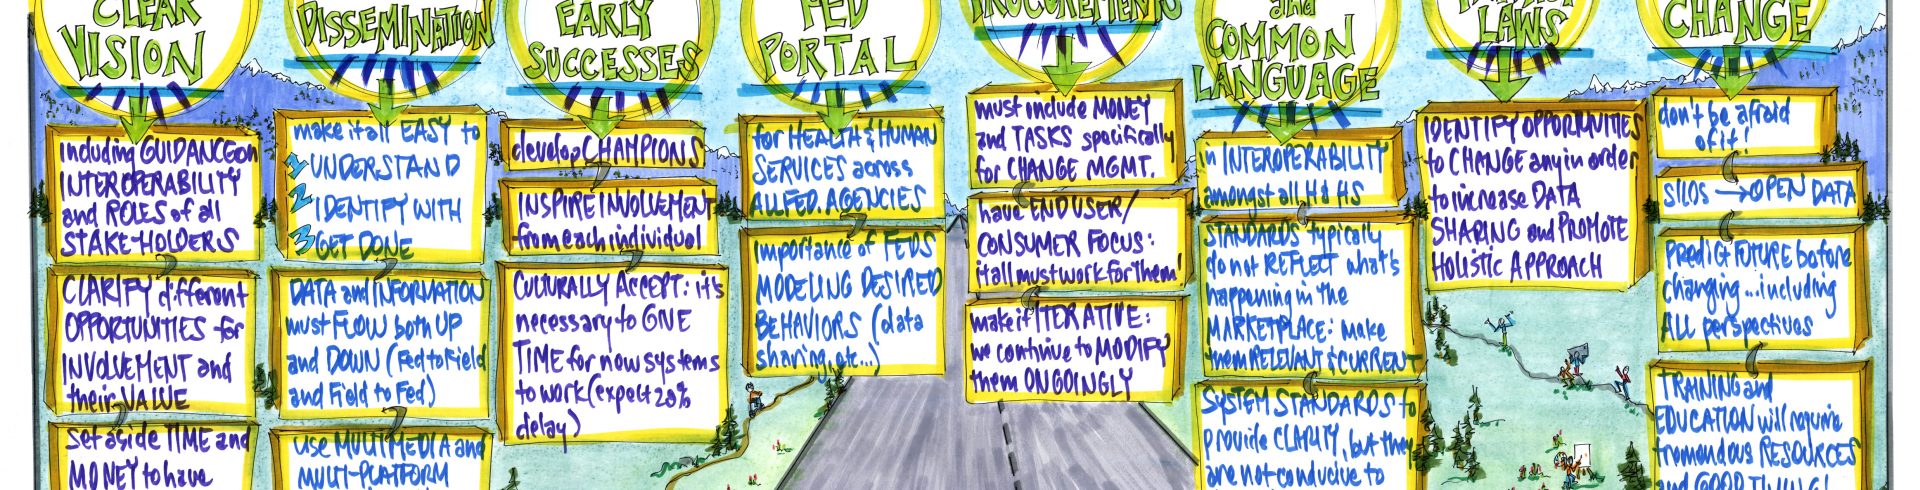 CLEAR
VISION
including GUIDANCE on
INTEROPERABILITY
and ROLES of all
STAKE-HOLDERS
CLARIFY different
OPPORTUNITIES for
INVOLVEMENT and
their VALUE
set aside TIME and
MONEY to have
DISSEMINATION
make it all EASY to
1 UNDERSTAND
2 IDENTIFY WITH
3 GET DONE
DATA and INFORMATION
must FLOW both UP
and DOWN (Fed to Field
and Field to Fed)
use MULTIMEDIA and
MULTI-PLATFORM
EARLY
SUCCESSES
develop CHAMPIONS
INSPIRE INVOLVEMENT
from each individual
CULTURALLY ACCEPT: it's
necessary to GIVE
TIME for now systems
to work (expect 20%
delay)
FED
PORTAL
for HEALTH & HUMAN
SERVICES across
ALL FED. AGENCIES
importance of FEDS
MODELING DESIRED
BEHAVIORS (data
sharing, etc...)
PROCUREMENTS
must include MONEY
and TASKS specifically
for CHANGE MGMT.
have END USER/
CONSUMER FOCUS:
it all must work for them!
make it ITERATIVE:
we continue to MODIFY
them ONGOINGLY
and
COMMON
LANGUAGE
in INTEROPERABILITY
amongst all H & HS
STANDARDS typically
do not REFLECT what's
happening in the
MARKETPLACE: make
them RELEVANT & CURRENT
SYSTEM STANDARDS to
provide CLARITY, but they
are not conducive to
LAWS
IDENTIFY OPPORTUNITIES
to CHANGE any in order
to increase DATA
SHARING and PROMOTE
HOLISTIC APPROACH
CHANGE
don't be afraid
of it!
SILOS → OPEN DATA
PREDICT FUTURE before
changing...including
ALL perspectives
TRAINING and
EDUCATION will require
tremendous RESOURCES
and GOOD TIMING!